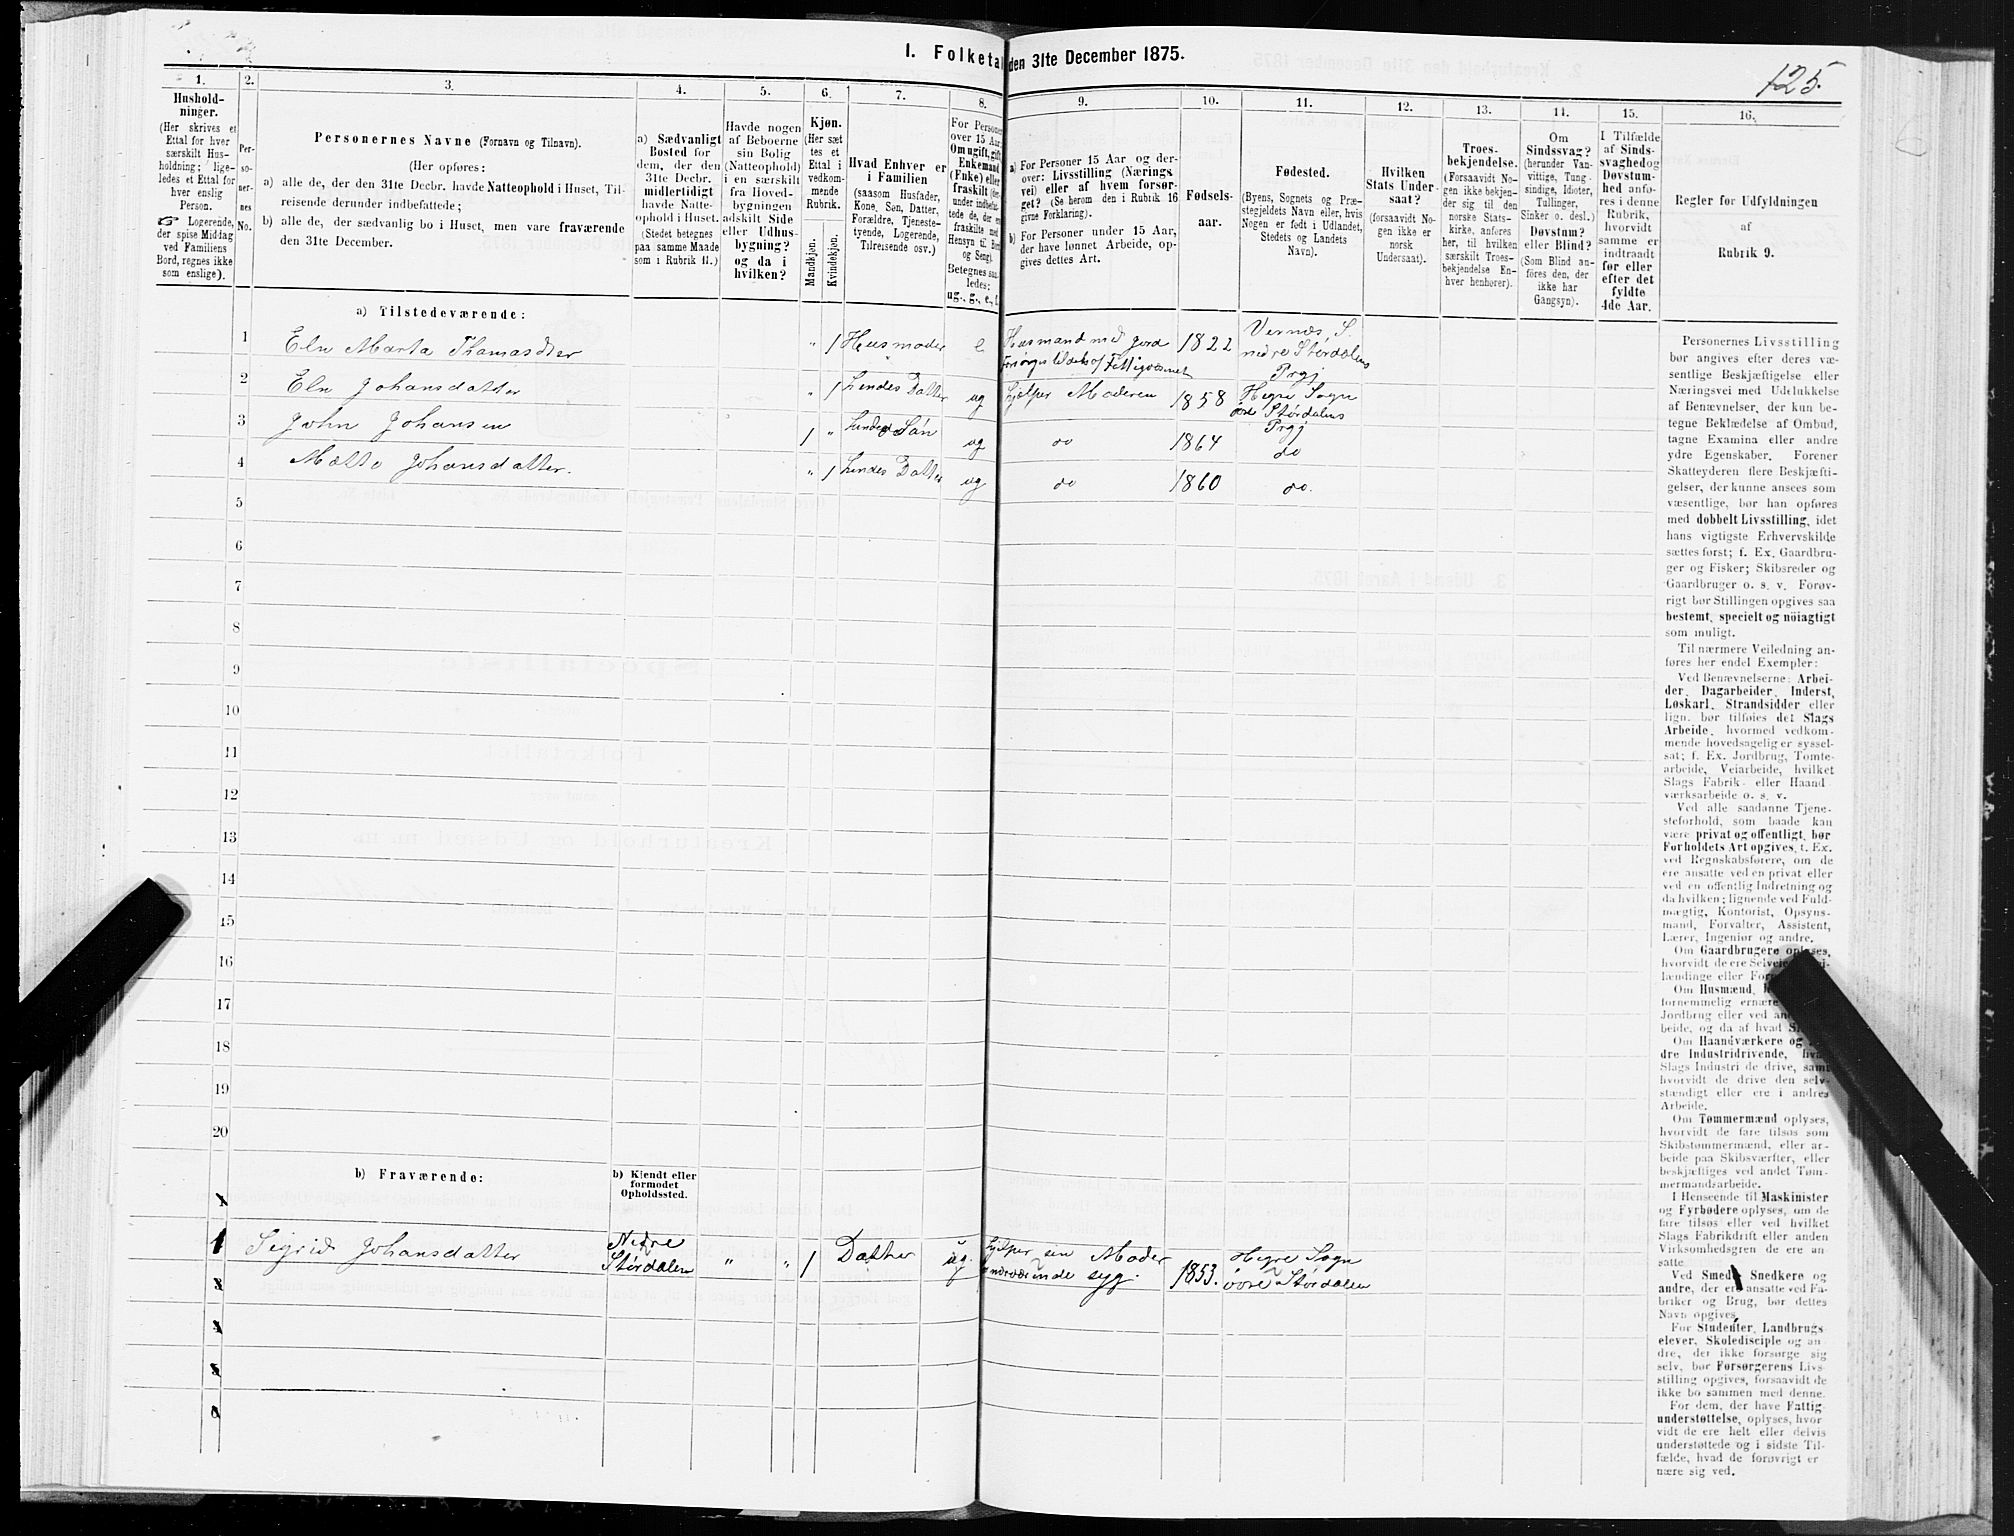 I. Folketal den 31te December 1875.
125.
1.
Hushold-
ninger.
(Her skrives et
Ettal for hver
særskilt Hus-
holdning; lige-
ledes et Ettal for
hver enslig
Person.
Logerende,
der spise Middag
ved Familiens
Bord, regnes ikke
som enslige).
2.
Per-
so-
ner-
nes
No.
3.
Personernes Navne (Fornavn og Tilnavn).
(Her opføres:
a) alle de, der den 31te Decbr. havde Natteophold i Huset, Til-
reisende derunder indbefattede;
b) alle de, der sædvanlig bo i Huset, men vare fraværende
den 31te December.
4.
a) Sædvanligt
Bosted for
dem, der den
31te Decbr.
midlertidigt
havde Natte-
ophold i Huset.
(Stedet betegnes
paa samme Maade
som i Rubrik 11.)
5.
Havde nogen
af Beboerne
sin Bolig
(Natteophold)
i en særskilt
fra Hoved-
bygningen
adskilt Side
eller Udhus-
bygning?
og da i
hvilken?
6.
Kjøn.
(Her sæt
tes et
Ettal i
vedkom-
mende
Rubrik.
Mandkjøn.
Kvindekjøn.
7.
Hvad Enhver er
i Familien
(saasom Husfader,
Kone, Søn, Datter,
Forældre, Tjeneste-
tyende, Logerende,
Tilreisende osv.)
8.
For Personer
over 15 Aar:
Om ugift, gift,
Enkemand
(Enke) eller
fraskilt (der-
under indbefat-
tede de, der ere
fraskilte med
Hensyn til Bord
og Seng).
Betegnes saa-
ledes:
ug., g., e., f.
9.
a) For Personer 15 Aar og der-
over: Livsstilling (Nærings
vei) eller af hvem forsør-
get? (Se herom den i Rubrik 16
givne Forklaring).
b) For Personer under 15 Aar,
der have lønnet Arbeide, op-
gives dettes Art.
10.
Fødsels-
aar.
11.
Fødested.
(Byens, Sognets og Præ-
stegjeldets Navn eller, hvis
Nogen er født i Udlandet,
Stedets og Landets
Navn).
12.
Hvilken
Stats Under-
saat?
(forsaavidt No-
gen ikke er
norsk
Undersaat).
13.
Troes-
bekjendelse.
(Forsaavidt No-
gen ikke bekjen-
der sig til den
norske Stats-
kirke, anføres
her, til hvilken
særskilt Troes-
bekjendelse En-
hver henhører).
14.
Om
Sindssvag?
(herunder Van-
vittige, Tung-
sindige, Idioter,
Tullinger,
Sinker o. desl.)
Døvstum?
eller Blind?
(Som Blind an-
føres den, der
ikke har
Gangsyn).
15.
I Tilfælde
af Sinds-
svaghed og
Døvstum-
hed anfø-
res i denne
Rubrik,
hvorvidt
samme er
indtraadt
før eller
efter det
fyldte
4de Aar.
16.
Regler for Udfyldningen
af
Rubrik 9.
a) Tilstedeværende:
1 Eln Marta Thomasdter " 1 Husmoder e Husmand med jord 1822 Vernæs S
Forsørges tildels af Fattigvæsenet nedre Størdalens
Prgj
2 Eln Johansdatter " 1 Hendes Datter ug hjelper Moderen 1858 Hegre Sogn
øvre Størdalens
Prgj
3 John Johansen 1 " Hendes Søn ug do 1864 do
4 Mætte Johansdatter. " 1 Hendes Datter ug do 1860 do.
5
6
7
8
9
10
11
12
13
14
15
16
17
18
19
20
b) Fraværende:
b) Kjendt eller
formodet
Opholdssted.
1 Sigrid Johansdatter Nedre
Størdalen " " 1 Datter ug. hjelper sin Moder
1853. Hegre Sogn
øvre Størdalen
Personernes Livsstilling
bør angives efter deres væ-
sentlige Beskjæftigelse eller
Næringsvei med Udelukkelse
af Benævnelser, der kun be-
tegne Beklædelse af Ombud,
tagne Examina eller andre
ydre Egenskaber. Forener
Skatteyderen flere Beskjæfti-
gelser, der kunne ansees som
væsentlige, bør han opføres
med dobbelt Livsstilling, idet
hans vigtigste Erhvervskilde
sættes først; f. Ex. Gaardbru-
ger og Fisker; Skibsreder og
Gaardbruger o. s. v. Forøv-
rigt bør Stillingen opgives saa
bestemt, specielt og nöiagtigt
som muligt.
Til nærmere Veiledning an-
føres her endel Exempler:
Ved Benævnelserne: Arbei-
der, Dagarbeider, Inderst,
Løskarl, Strandsidder eller
lign. bør tilføies det Slags
Arbeide, hvormed vedkom-
mende hovedsagelig er syssel-
sat; f. Ex. Jordbrug, Tomte-
arbeide, Veiarbeide, hvilket
Slags Fabrik- eller Haand-
værksarbeide o. s. v.
Ved alle saadanne Tjene-
steforhold, som baade kan
være privat og offentligt, bør
Forholdets Art opgives, f. Ex.
ved Regnskabsførere, om de
ere ansatte ved en privat eller
ved en offentlig Indretning og
da hvilken; lignende ved Fuld-
mægtig, Kontorist, Opsyns-
mand, Forvalter, Assistent,
Lærer, Ingeniør og andre.
Om Gaardbrugere oplyses,
hvorvidt de ere
lændinge eller
Om Husmænd,
fornemmelig ernære
Jordbrug eller ved
beide, og da af hvad
Om Haandværkere og
dre Industridrivende,
Slags Industri de drive, samt
hvorvidt de drive den selv-
stændigt eller ere i andres
Arbeide.
Om Tømmermænd oplyses,
hvorvidt de fare tilsøs som
Skibstømmermænd, eller ar-
beide paa Skibsværfter, eller
beskjæftiges ved andet Tøm-
mermandsarbeide.
I Henseende til Maskinister
og Fyrbødere oplyses, om de
fare tilsøs eller ved hvilket
Slags Fabrikdrift eller anden
Virksomhedsgren de ere an-
satte
Ved Smede, Snedkere og
andre, der ere ansatte ved Fa-
briker og Brug, bør dettes
Navn opgives.
For Studenter, Landbrugs-
elever, Skoledisciple og an-
dre, der ikke forsørge sig
selv, bør Forsørgerens Livs-
stilling opgives, forsaavidt de
ikke bo sammen med denne.
For dem, der have Fattig-
understøttelse, oplyses, hvor
vidt de ere helt eller delvis
understøttede og i sidste Til-
fælde, hvad de forøvrigt er
nære sig ved.